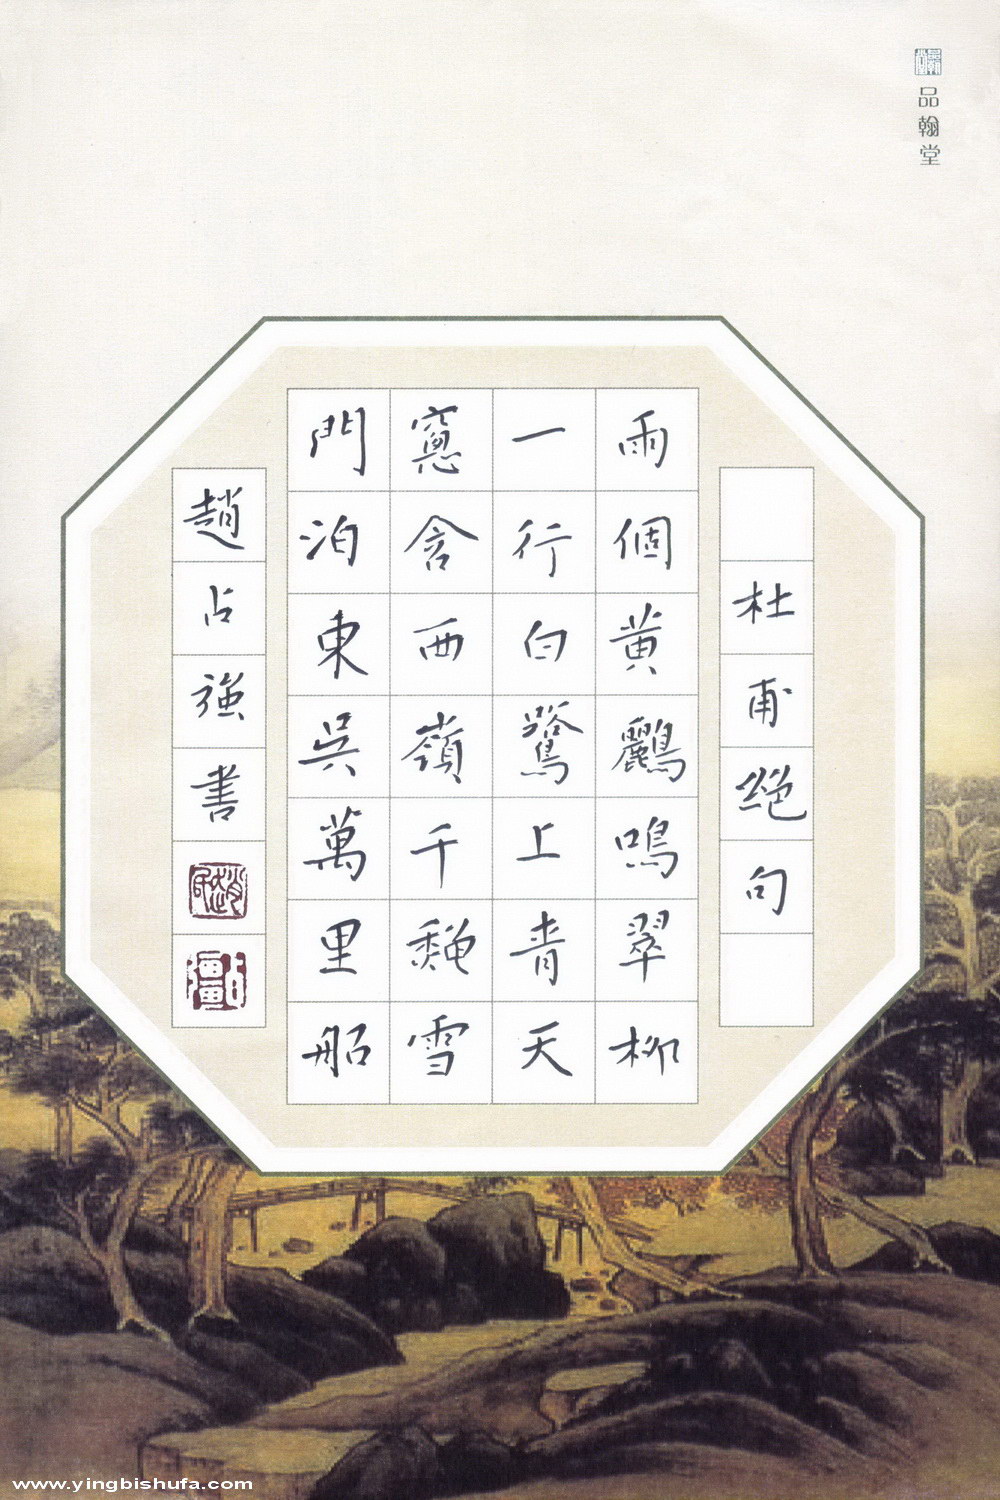 品翰堂
杜甫絶句
兩個黃鸝鳴翠柳
一行白鷺上青天
窻含西嶺千龝雪
門泊東吳萬里船
趙占強書
www.yingbishufa.com